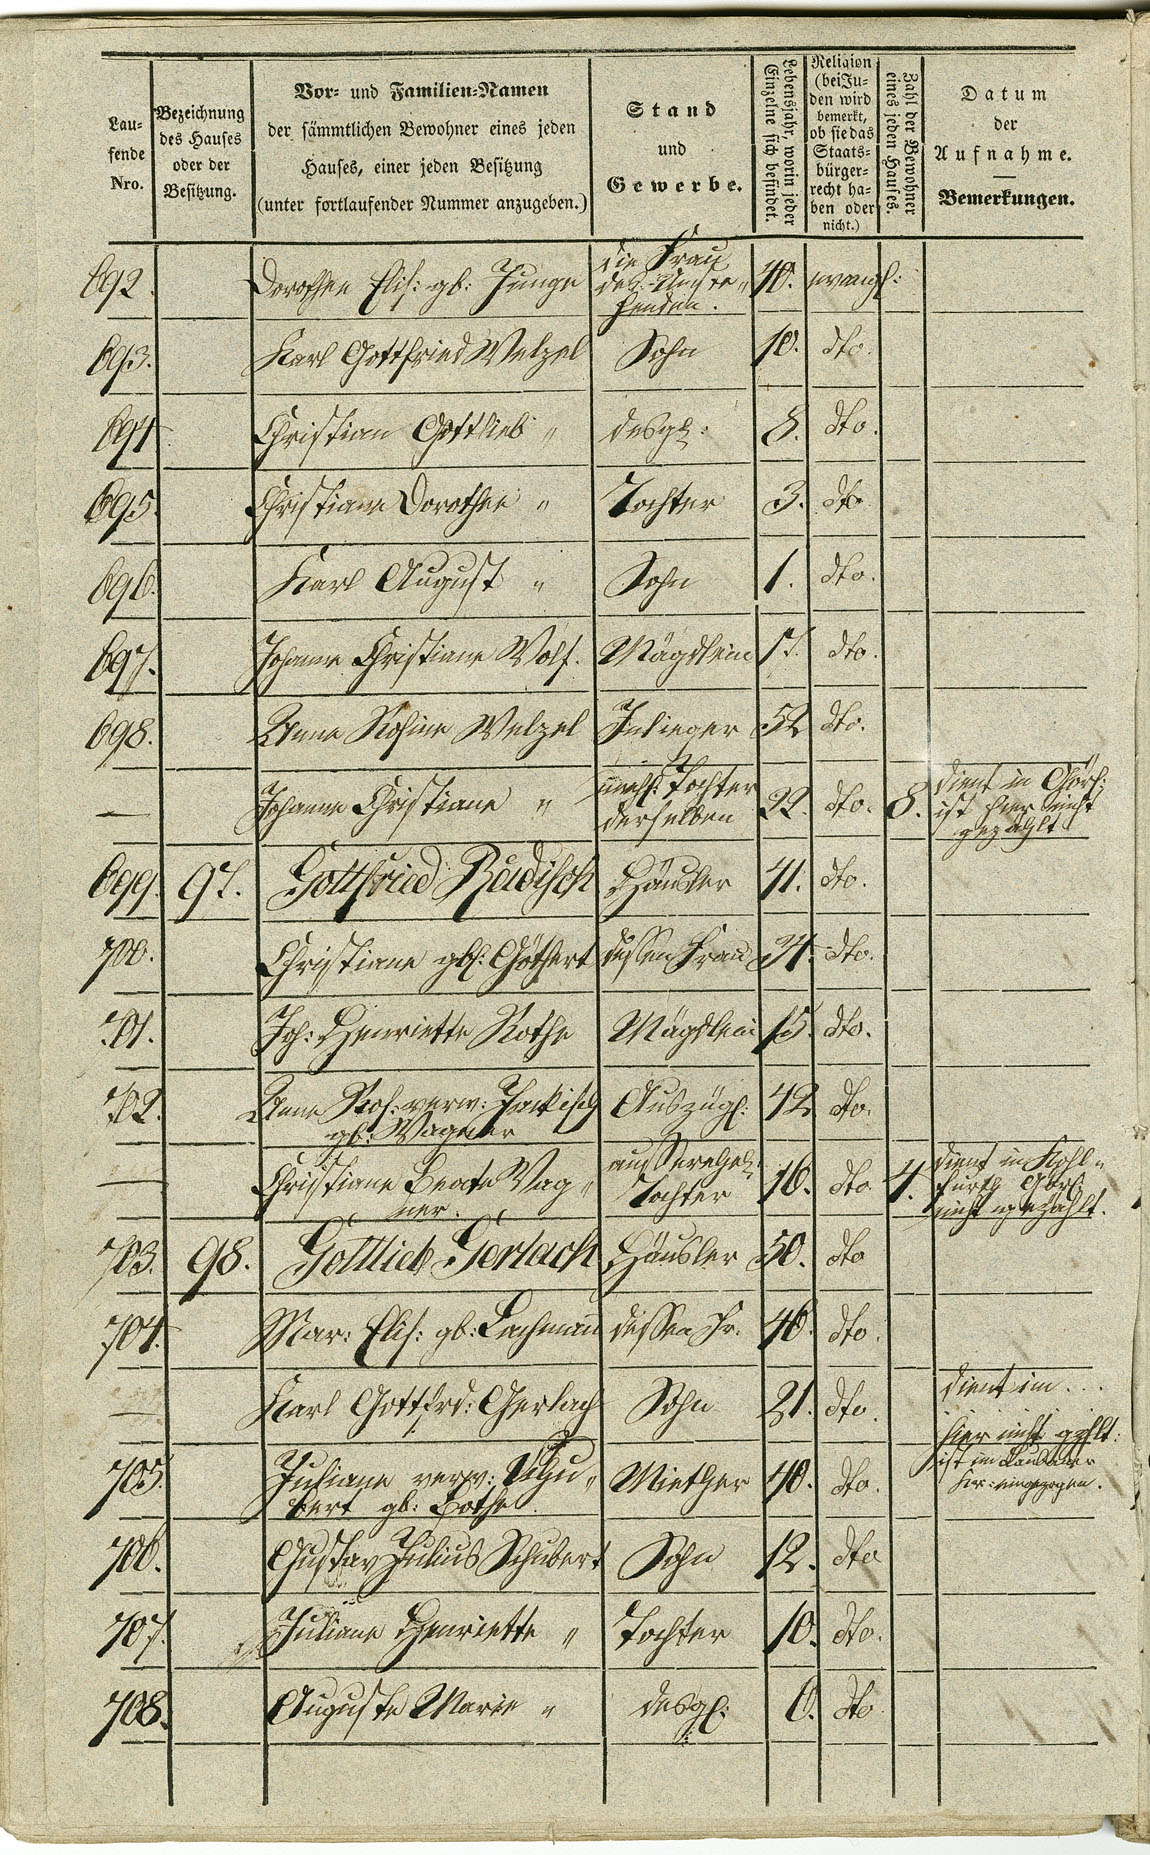 Lau-
fende
Nro.
Bezeichnung
des Hauses
oder der
Besitzung.
Vor- und Familien-Namen
der sämmtlichen Bewohner eines jeden
Hauses, einer jeden Besitzung
(unter fortlaufender Nummer anzugeben.)
Stand
und
Gewerbe.
Lebensjahr, worin jeder
Einzelne sich befindet.
Religion
(bei Ju-
den wird
bemerkt,
ob sie das
Staats-
bürger-
recht ha-
ben oder
nicht.)
Zahl der Bewohner
eines jeden Hauses.
Datum
der
Aufnahme.
Bemerkungen.
692. Dorothee Elis: gb: Junge die Frau 40. evangl:
693. Karl Gottfried Welzel Sohn 10. dto.
694 Christian Gottlieb " desgl: 8. dto.
695. Christiane Dorothee " Tochter 3. dto
696. Karl August " Sohn 1. dto.
697. Johanne Christiane Wolf. Mägdlein 17. dto.
698. Anne Rosine Welzel Inlieger 52 dto.
— Johanne Christiane " unehl: Tochter
derselben 22. dto. 8. dient in Görl:
ist hier nicht
gezählt
699. 97. Gottfried Rudisch Häusler 41. dto.
700. Christiane gb: Göthert dessen Frau 34. dto.
701. Joh: Henriette Rothe Mägdlein 15. dto.
702. Anne Ros: verw: Jackisch
gb: Wagner Auszügl: 42 dto.
— Christiane Beate Wag-
ner. ausserehel:
Tochter 16. dto. 4. dient in Kohl-
furth Görl:
nicht gezählt.
703. 98. Gottlieb Gerlach Häusler 50. dto
704. Mar: Elis: gb: Lachmann dessen Fr. 46. dto.
— Karl Gottfrd: Gerlach Sohn 21. dto. dient im ...
hier nicht gzhlt:
ist im
eingezogen.
705. Juliane verw: Schu-
bert gb: Bothe. Miether 40. dto.
706. Gustav Julius Schubert Sohn 12. dto
707. Juliane Henriette " Tochter 10. dto.
708. Auguste Marie " desgl: 6. dto